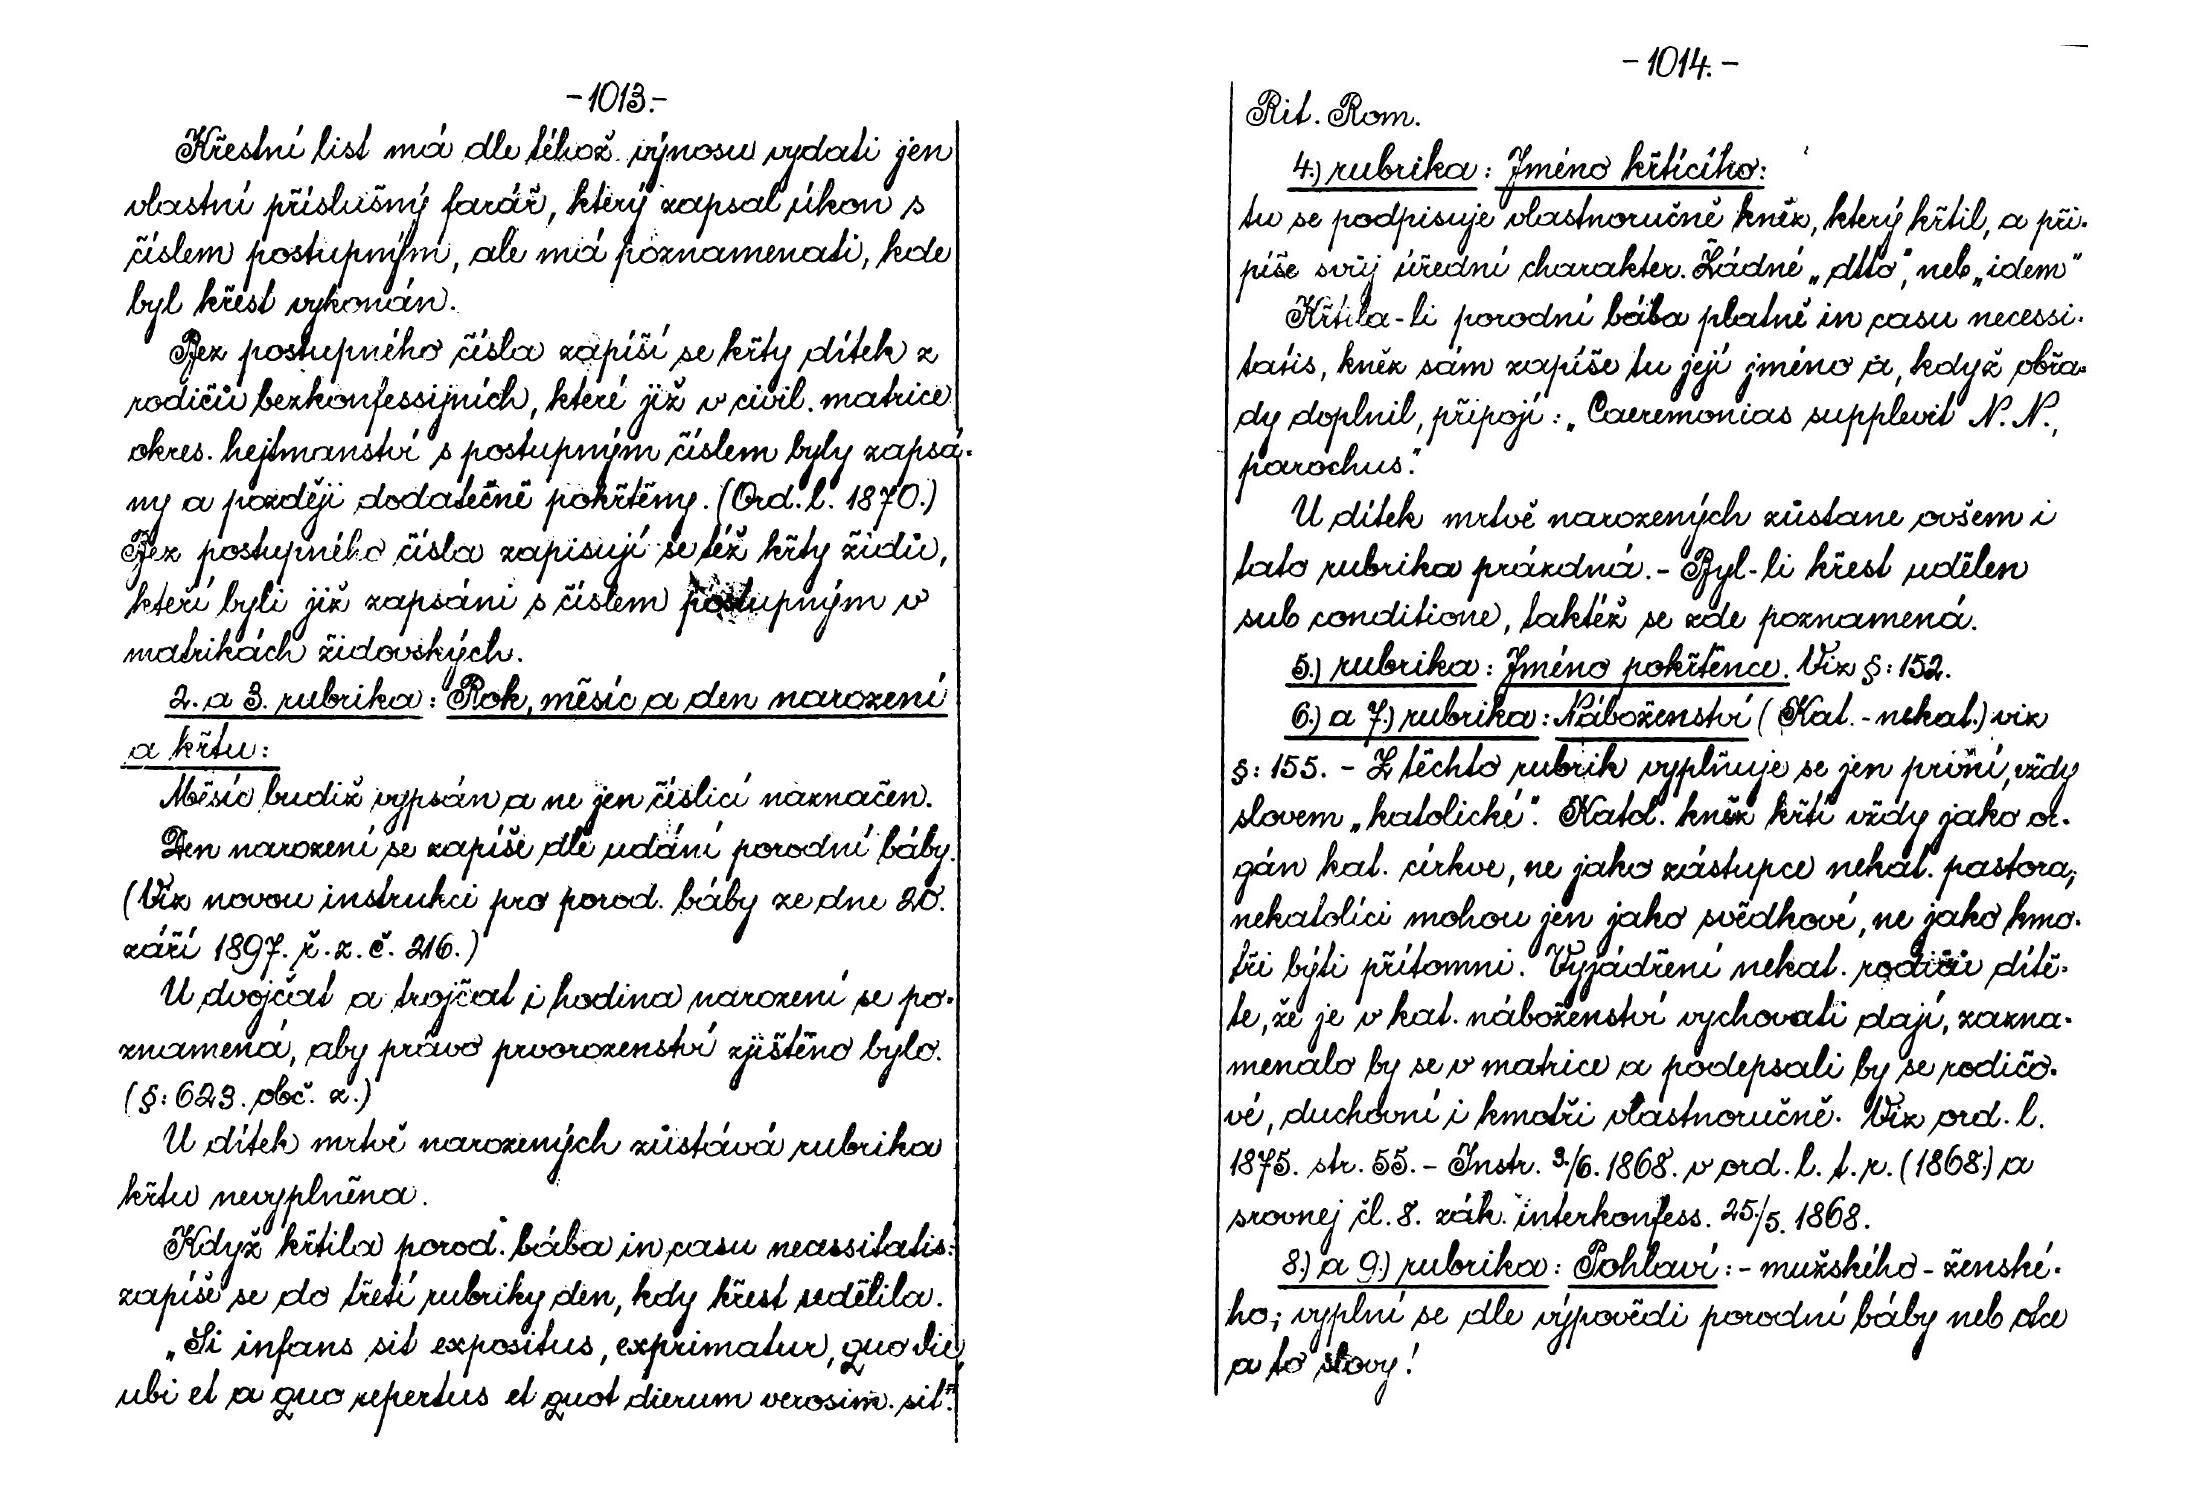 -1013.-
Křestní list má dle téhož výnosu vydati jen
vlastní příslušný farář, který zapsal úkon s
číslem postupným, ale má poznamenati, kde
byl křest vykonán.
Bez postupného čísla zapíší se křty dítek z
rodičů bezkonfessijních, které již v civil. matrice
okres. hejtmanství s postupným číslem byly zapsá-
ny a později dodatečně pokřtěny. (Ord. l. 1870.)
Bez postupného čísla zapisují se též křty židů,
kteří byli již zapsáni s číslem postupným v
matrikách židovských.
2. a 3. rubrika: Rok, měsíc a den narození
a křtu:
Měsíc budiž vypsán a ne jen číslicí naznačen.
Den narození se zapíše dle udání porodní báby.
(Viz novou instrukci pro porod. báby ze dne 20.
září 1897. ř. z. č. 216.)
U dvojčat a trojčat i hodina narození se po-
znamená, aby právo prvorozenství zjištěno bylo.
(§: 623. obč. z.)
U dítek mrtvě narozených zůstává rubrika
křtu nevyplněna.
Když křtila porod. bába in casu necessitatis:
zapíše se do třetí rubriky den, kdy křest udělila.
„Si infans sit expositus, exprimatur, quo die,
ubi et a quo repertus et quot dierum verosim. sit."
-1014.-
Rit. Rom.
4.) rubrika: Jméno křtícího:
tu se podpisuje vlastnoručně kněz, který křtil, a při-
píše svůj úřední charakter. Žádné „dtto", neb „idem"
Křtila-li porodní bába platně in casu necessi-
tatis, kněz sám zapíše tu její jméno a, když obřa-
dy doplnil, připojí: „Caeremonias supplevit N. N.,
parochus."
U dítek mrtvě narozených zůstane ovšem i
tato rubrika prázdná. - Byl-li křest udělen
sub conditione, taktéž se zde poznamená.
5.) rubrika: Jméno pokřtěnce. Viz §: 152.
6.) a 7.) rubrika: Náboženství (Kat. - nekat.) viz
§: 155. - Z těchto rubrik vyplňuje se jen první, vždy
slovem „katolické". Katol. kněz křtí vždy jako or-
gán kat. církve, ne jako zástupce nekat. pastora;
nekatolíci mohou jen jako svědkové, ne jako kmo-
tři býti přítomni. Vyjádření nekat. rodičů dítě-
te, že je v kat. náboženství vychovati dají, zazna-
menalo by se v matrice a podepsali by se rodičo-
vé, duchovní i kmotři vlastnoručně. Viz ord. l.
1875. str. 55. - Instr. 3./6. 1868. v ord. l. t. r. (1868.) a
srovnej čl. 8. zák. interkonfess. 25./5. 1868.
8.) a 9.) rubrika: Pohlaví: - mužského - ženské-
ho; vyplní se dle výpovědi porodní báby neb otce
a to slovy!